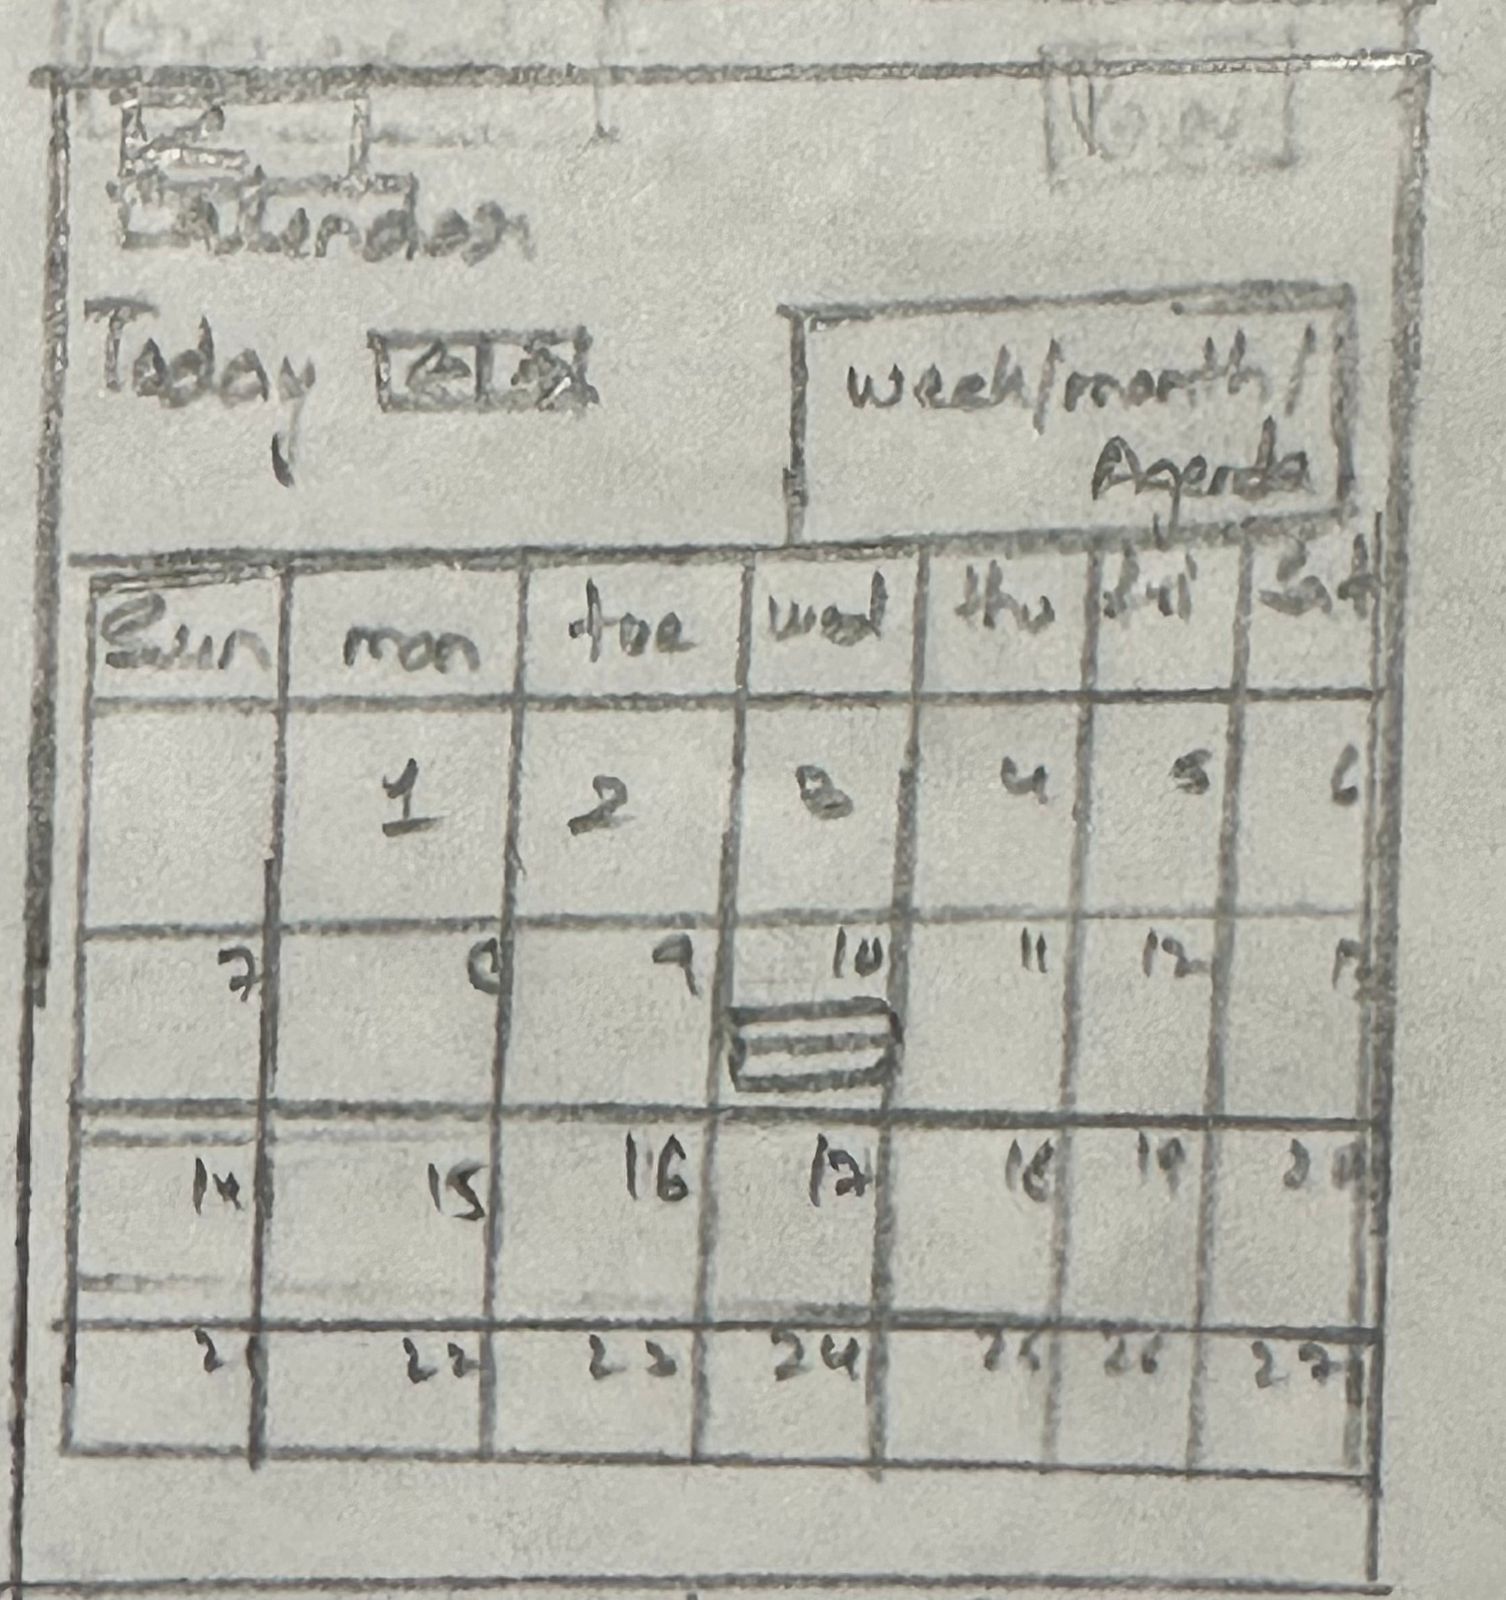 Calendar
Today
week/month/
Agenda
Sun mon tue wed thu fri Sat
1 2 3 4 5 6
7 8 9 10 11 12 13
14 15 16 17 18 19 20
21 22 23 24 25 26 27